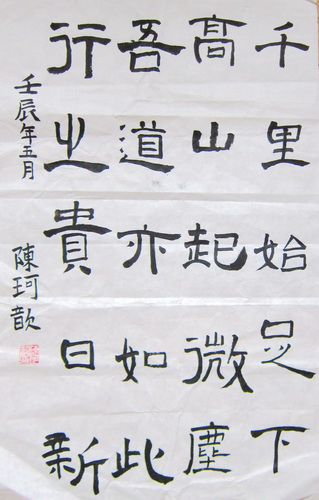 千里始足下
高山起微塵
吾道亦如此
行之貴日新
壬辰年五月 陳珂歆